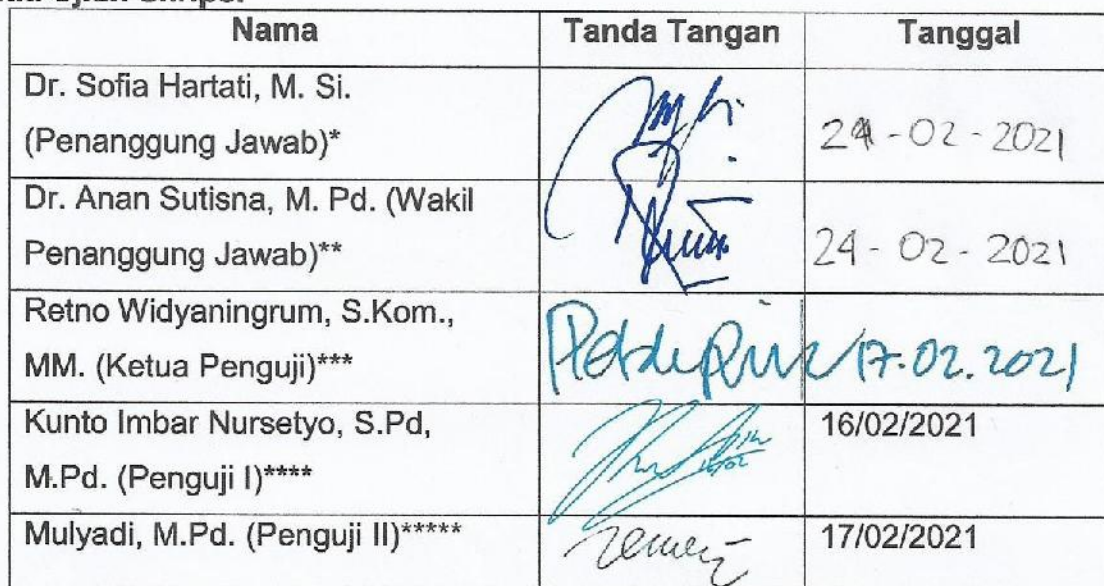 Nama Tanda Tangan Tanggal
Dr. Sofia Hartati, M. Si.
(Penanggung Jawab)*
24-02-2021
Dr. Anan Sutisna, M. Pd. (Wakil
Penanggung Jawab)**
24-02-2021
Retno Widyaningrum, S.Kom.,
MM. (Ketua Penguji)***
17.02.2021
Kunto Imbar Nursetyo, S.Pd, 16/02/2021
M.Pd. (Penguji I)****
Mulyadi, M.Pd. (Penguji II)***** 17/02/2021